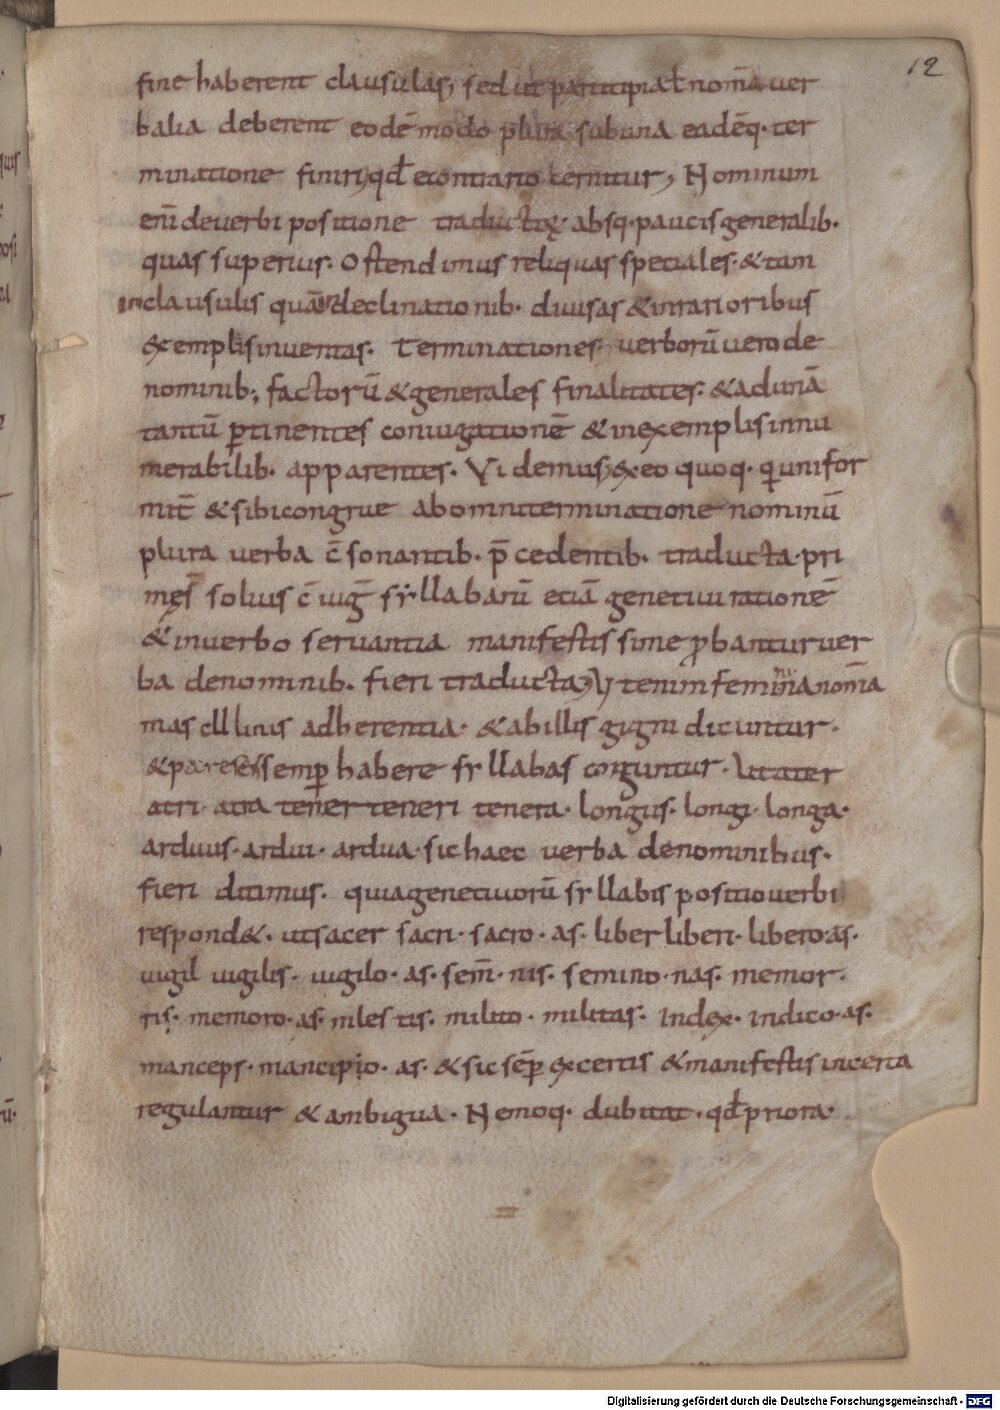 12
fine haberent clausulas, sed ut participia ł nom̄a ver
balia deberent eodē modo plura sub una eadēq· ter
minatione finiri, qđ econtrario cernitur, Nominum
eni͂ de verbi positione traductę absq· paucis generalib·
quas superius· Ostendimus reliquas speciales· & tam
in clausulis quā declinationib· divisas & in rarioribus
exemplis inventas· Terminationes verborū vero de
nominib; factorū & generales finalitates· & ad unā
tantū ꝑtinentes coniugationē & in exemplis innu
merabilib· apparentes· Videmus, ex eo quoq· q unifor
mit̄ & sibi congrue ab omni terminatione nominū
plura verba c̄sonantib· p̄cedentib· traducta· pri
mę solius c̄iuḡ syllabarū etiā genetivi rationē
& in verbo servantia manifestissime ꝓbantur ver
ba de nominib· fieri traducta, Ut enim feminina nom̄a
masc llinis adherentia· & ab illis gigni dicuntur·
& pares semꝑ habere syllabas coguntur· Ut ater
atri· atra tener teneri tenera· longus· longi· longa·
arduus· ardui· ardua· sic haec verba de nominibus·
fieri dicimus· quia genetivorū syllabis positio verbi
respond&· ut sacer sacri· sacro· as· liber liberi· libero· as·
vigil vigilis· vigilo· as· sem̄· nis· semino· nas· memor·
ris· memoro· as· miles tis· milito· militas· Index· indico· as·
manceps· mancipio· as· & sic sēꝑ ex certis & manifestis incerta
regulantur & ambigua· Nemoq· dubitat· qđ priora·
Digitalisierung gefördert durch die Deutsche Forschungsgemeinschaft - DFG